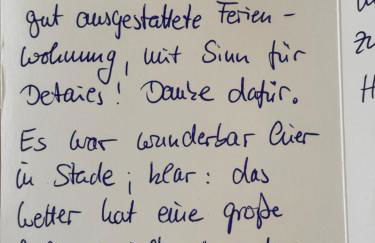 gut ausgestattete Ferien-
wohnung, mit Sinn für
Details! Danke dafür.
Es war wunderbar hier
in Stade; klar: das
Wetter hat eine große